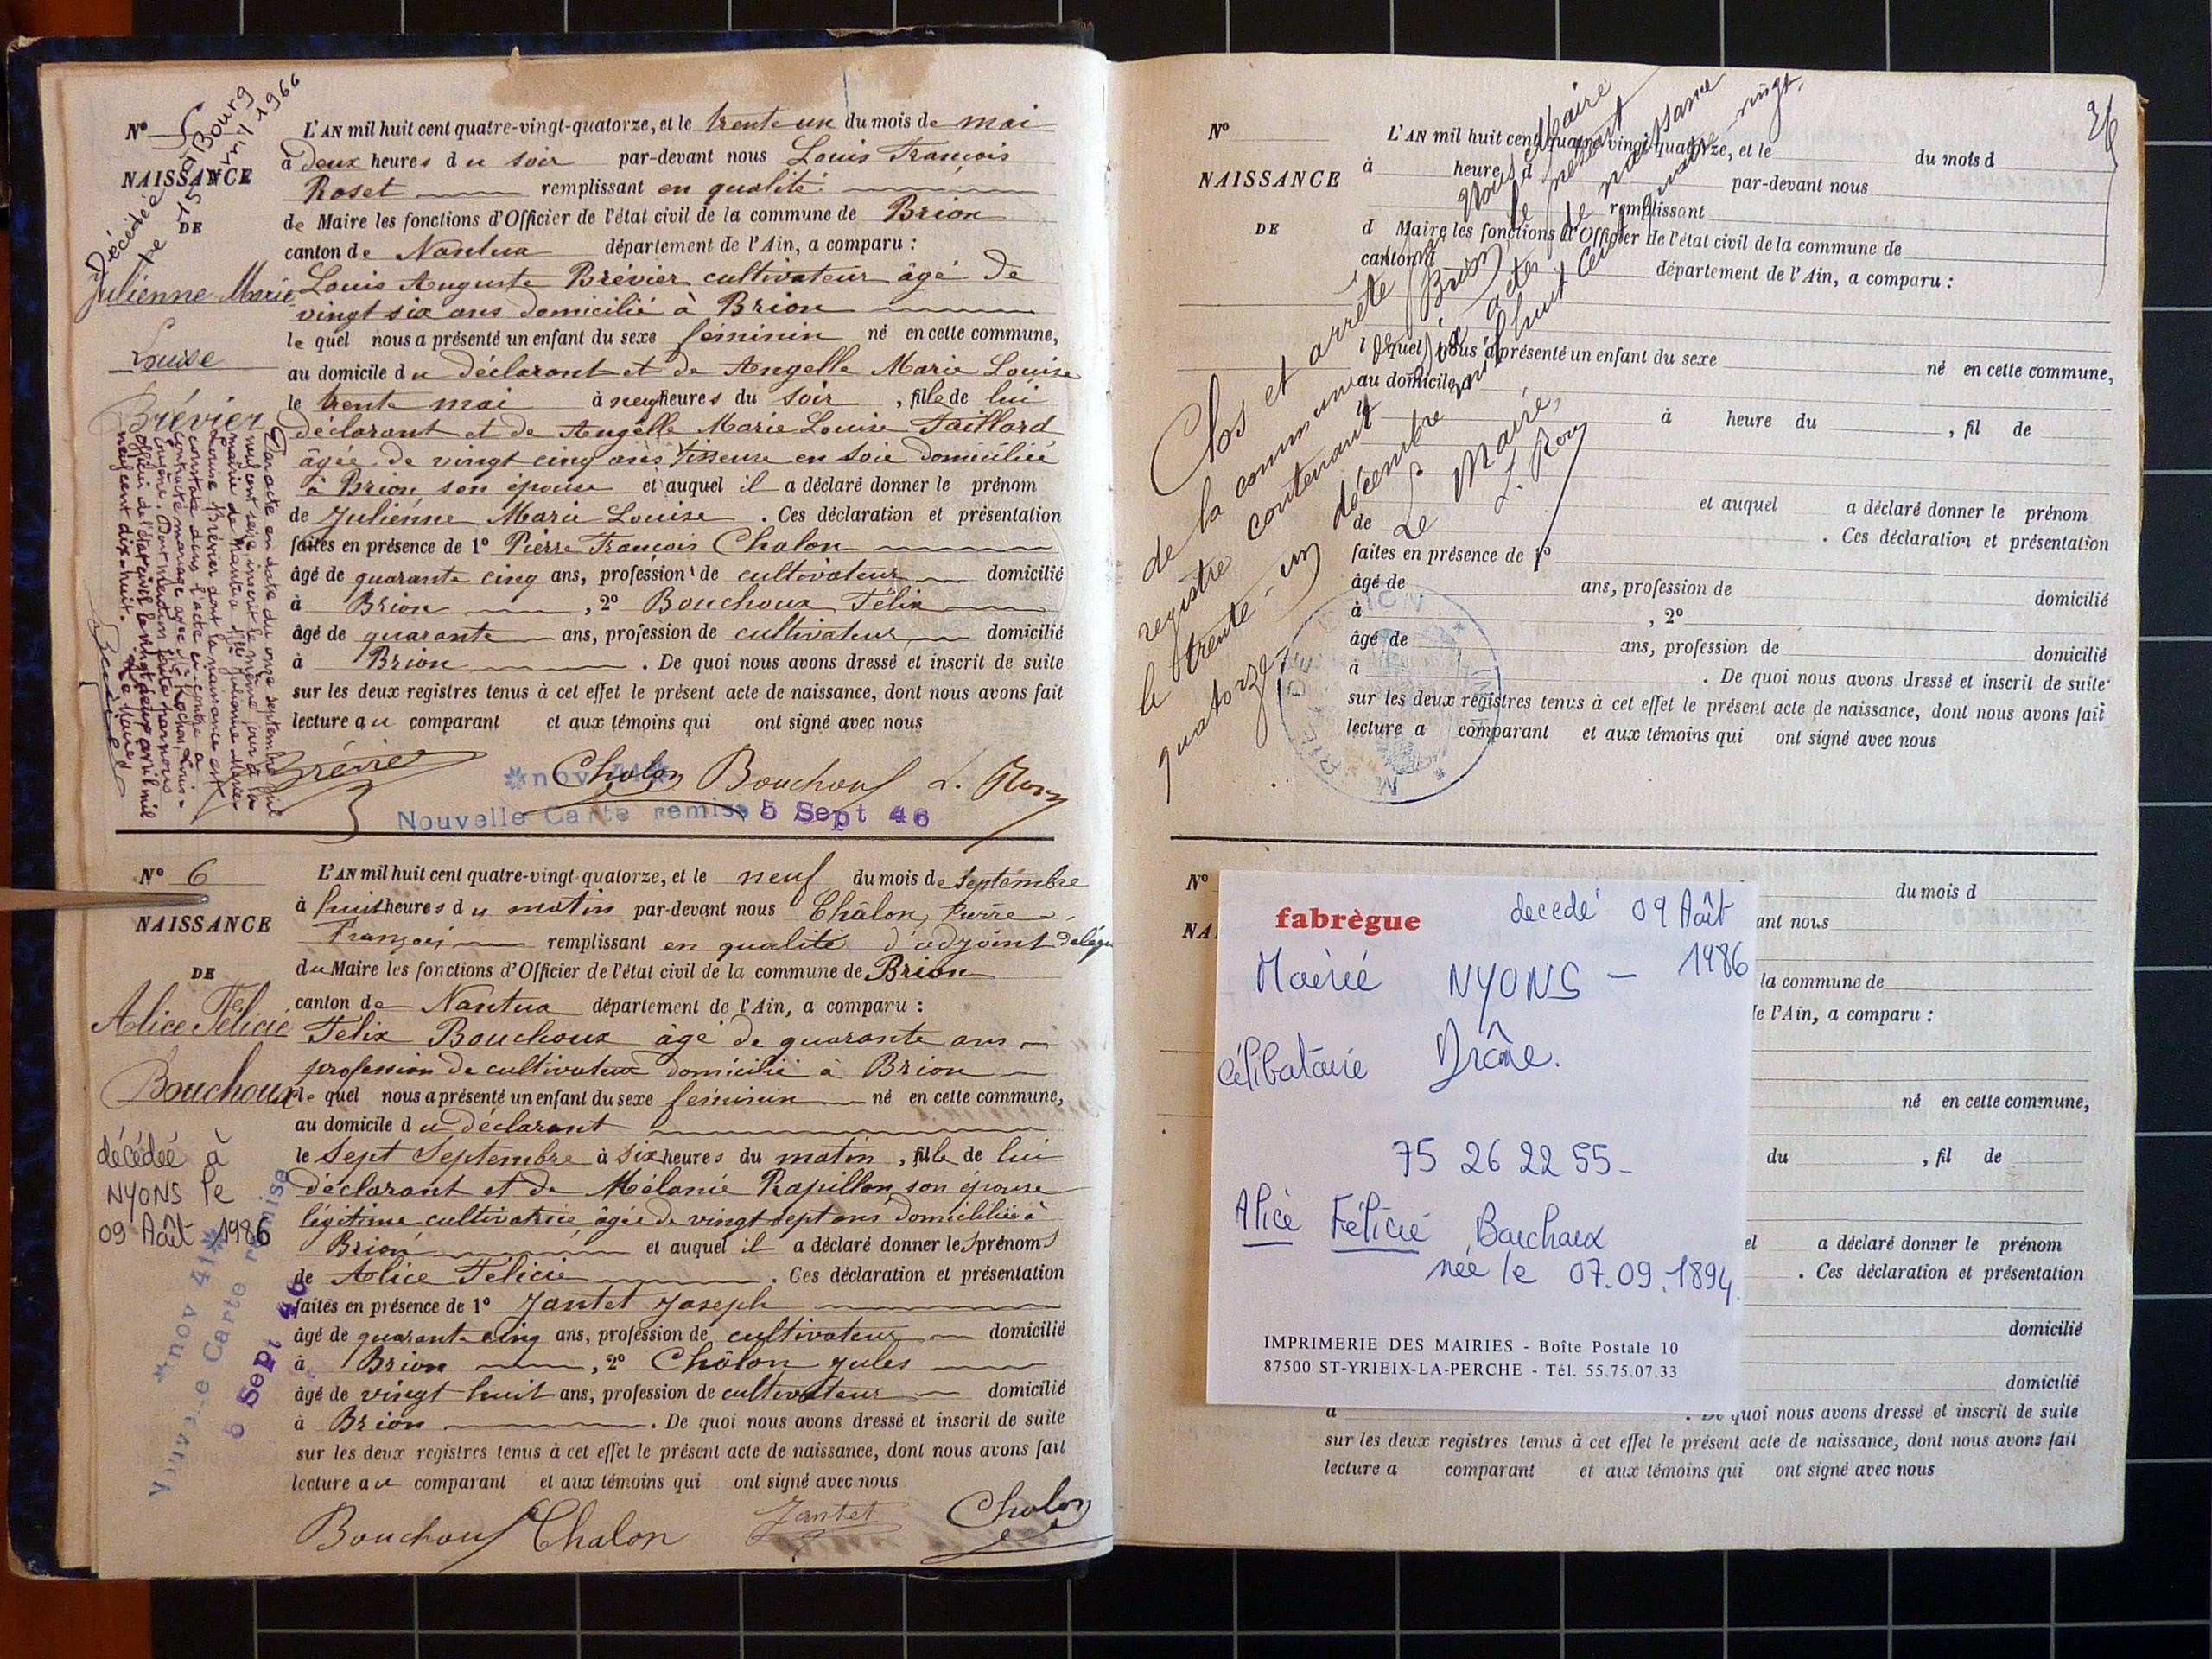 N° 5
NAISSANCE
DE
Julienne Marie
Louise
Brévier
Décédée à Bourg
le 15 avril 1966
L'AN mil huit cent quatre-vingt-quatorze, et le trente un du mois de mai
à deux heures du soir par-devant nous Louis François
Roset remplissant en qualité
de Maire les fonctions d'Officier de l'état civil de la commune de Brion
canton de Nantua département de l'Ain, a comparu :
Louis Auguste Brévier cultivateur âgé de
vingt six ans domicilié à Brion
le quel nous a présenté un enfant du sexe féminin né en cette commune,
au domicile du déclarant et de Angelle Marie Louise
le trente mai à neuf heures du soir, fille de lui
déclarant et de Angelle Marie Louise Taillard
âgée de vingt cinq ans tisseuse en soie domiciliée
à Brion, son épouse et auquel il a déclaré donner le prénom
de Julienne Marie Louise . Ces déclaration et présentation
faites en présence de 1° Pierre François Chalon
âgé de quarante cinq ans, profession de cultivateur domicilié
à Brion , 2° Bouchoux Félix
âgé de quarante ans, profession de cultivateur domicilié
à Brion . De quoi nous avons dressé et inscrit de suite
sur les deux registres tenus à cet effet le présent acte de naissance, dont nous avons fait
lecture au comparant et aux témoins qui ont signé avec nous
Par acte en date du onze septembre mil
neuf cent seize inscrit le même jour à la
mairie de Nantua Julienne Marie-
Louise Brévier dont la naissance est
constatée dans l'acte ci-contre a
contracté mariage avec Louis-
Eugène. Dont mention faite par nous
officier de l'état civil le vingt deux avril mil
neuf cent dix-huit. Le Maire
Brévier Chalon Bouchoux L. Roset
*nov 41*
Nouvelle Carte remise 5 Sept 46
N° 6
NAISSANCE
DE
Alice Félicie
Bouchoux
décédée à
NYONS le
09 Août 1986
*nov 41*
Nouvelle Carte remise
6 Sept 46
L'AN mil huit cent quatre-vingt-quatorze, et le neuf du mois de Septembre
à huit heures du matin par-devant nous Châlon, Pierre
François remplissant en qualité d'adjoint délégué
du Maire les fonctions d'Officier de l'état civil de la commune de Brion
canton de Nantua département de l'Ain, a comparu :
Felix Bouchoux âgé de quarante ans
profession de cultivateur domicilié à Brion
le quel nous a présenté un enfant du sexe féminin né en cette commune,
au domicile du déclarant
le Sept Septembre à six heures du matin, fille de lui
déclarant et de Mélanie Rapillon, son épouse
légitime cultivatrice âgée de vingt sept ans domiciliée à
Brion et auquel il a déclaré donner les prénoms
de Alice Felicie . Ces déclaration et présentation
faites en présence de 1° Jantet Joseph
âgé de quarante cinq ans, profession de cultivateur domicilié
à Brion , 2° Châlon Jules
âgé de vingt huit ans, profession de cultivateur domicilié
à Brion . De quoi nous avons dressé et inscrit de suite
sur les deux registres tenus à cet effet le présent acte de naissance, dont nous avons fait
lecture au comparant et aux témoins qui ont signé avec nous
Bouchoux Chalon Jantet Chalon
26
N°
NAISSANCE
DE
L'AN mil huit cent quatre-vingt-quatorze, et le du mois d
à heure d par-devant nous
remplissant
d Maire les fonctions d'Officier de l'état civil de la commune de
canton d département de l'Ain, a comparu :
l quel nous a présenté un enfant du sexe né en cette commune,
au domicile
le à heure du , fil de
et auquel a déclaré donner le prénom
de . Ces déclaration et présentation
faites en présence de 1°
âgé de ans, profession de domicilié
à , 2°
âgé de ans, profession de domicilié
à . De quoi nous avons dressé et inscrit de suite
sur les deux registres tenus à cet effet le présent acte de naissance, dont nous avons fait
lecture a comparant et aux témoins qui ont signé avec nous
Clos et arrêté par Nous, Maire
de la commune de Brion, le présent
registre contenant six actes de naissance
le trente-un décembre mil huit cent quatre-vingt-
quatorze.
Le Maire,
L. Roset
MAIRIE DE BRION * AIN *
N°
NAI
du mois d
ant nous
la commune de
de l'Ain, a comparu :
né en cette commune,
du , fil de
el a déclaré donner le prénom
. Ces déclaration et présentation
domicilié
domicilié
à . De quoi nous avons dressé et inscrit de suite
sur les deux registres tenus à cet effet le présent acte de naissance, dont nous avons fait
lecture a comparant et aux témoins qui ont signé avec nous
fabrègue
decedé 09 Août
1986
Mairie NYONS -
célibataire Drôme.
75 26 22 55-
Alice Félicie Bouchoux
née le 07.09.1894.
IMPRIMERIE DES MAIRIES - Boîte Postale 10
87500 ST-YRIEIX-LA-PERCHE - Tél. 55.75.07.33